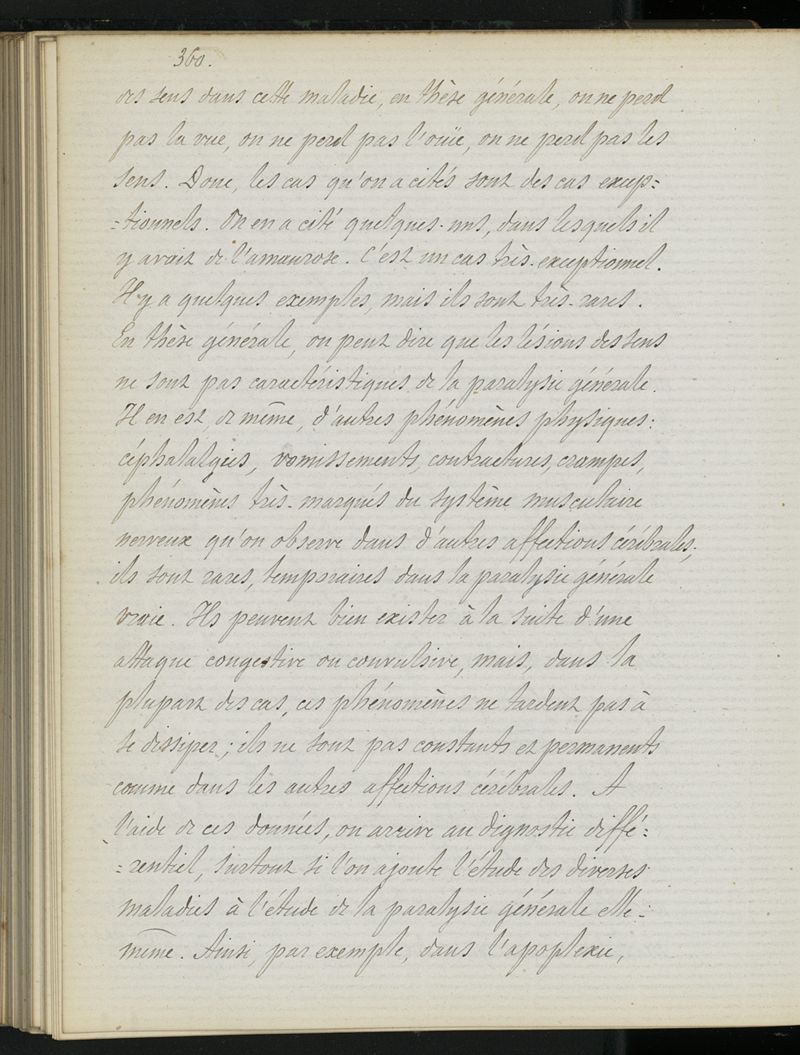 360.
des sens dans cette maladie, en thèse générale, on ne perd
pas la vue, on ne perd pas l'ouïe, on ne perd pas les
sens. Donc, les cas qu'on a cités sont des cas excep=
=tionnels. On en a cité quelques-uns, dans lesquels il
y avait de l'amaurose. C'est un cas très-exceptionnel.
Il y a quelques exemples, mais ils sont très-rares.
En thèse générale, on peut dire que les lésions des sens
ne sont pas caractéristiques de la paralysie générale.
Il en est, de même, d'autres phénomènes physiques:
céphalalgies, vomissements, contractures, crampes,
phénomènes très-marqués du système musculaire
nerveux qu'on observe dans d'autres affections cérébrales;
ils sont rares, temporaires dans la paralysie générale
vraie. Ils peuvent bien exister à la suite d'une
attaque congestive ou convulsive, mais, dans la
plupart des cas, ces phénomènes ne tardent pas à
se dissiper; ils ne sont pas constants et permanents
comme dans les autres affections cérébrales. A
l'aide de ces données, on arrive au dignostic diffé=
=rentiel, surtout si l'on ajoute l'étude des diverses
maladies à l'étude de la paralysie générale elle-
même. Ainsi, par exemple, dans l'apoplexie,